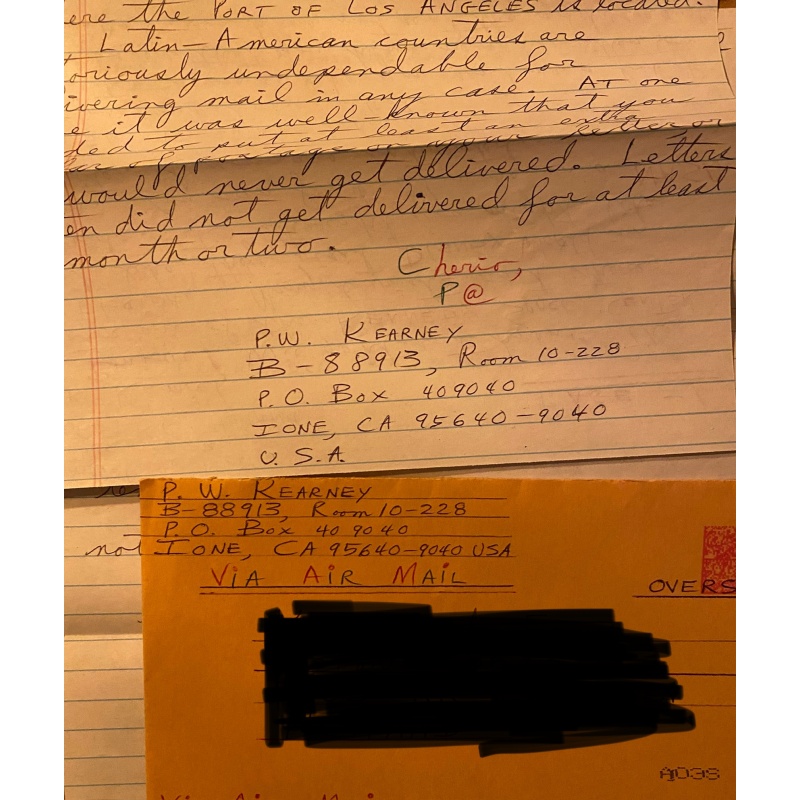 ere the PORT OF LOS ANGELES is located.
Latin-American countries are
oriously undependable for
ivering mail in any case. AT one
e it was well-known that you
ded to put at least an extra
of postage on your letter or
would never get delivered. Letters
en did not get delivered for at least
month or two.
Cherio,
P@
P.W. KEARNEY
B-88913, Room 10-228
P.O. Box 409040
IONE, CA 95640-9040
U.S.A.
P. W. KEARNEY
B-88913, Room 10-228
P.O. Box 409040
not
IONE, CA 95640-9040 USA
VIA AIR MAIL
OVERS
A103S
Via Air Mai